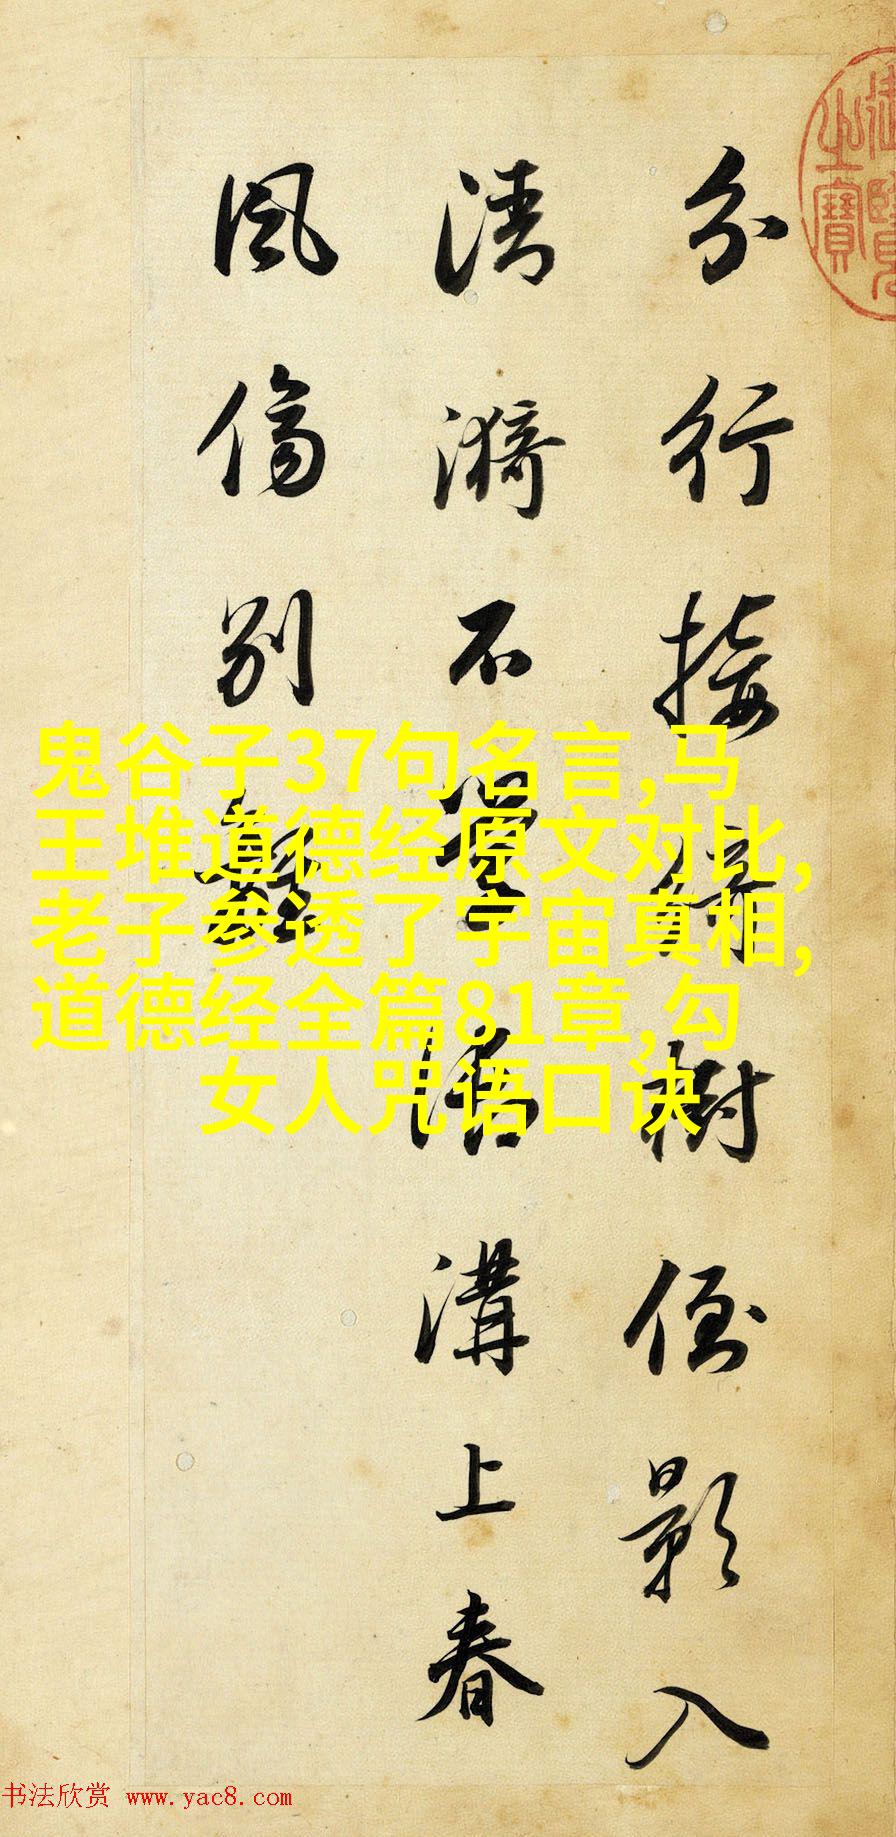 分行接綺樹倒影入
清漪不學御溝上春
風傷別離
鬼谷子37句名言,马
王堆道德经原文对比,
老子参透了宇宙真相,
道德经全篇81章,勾
女人咒语口诀
之寶
书法欣赏 www.yac8.com